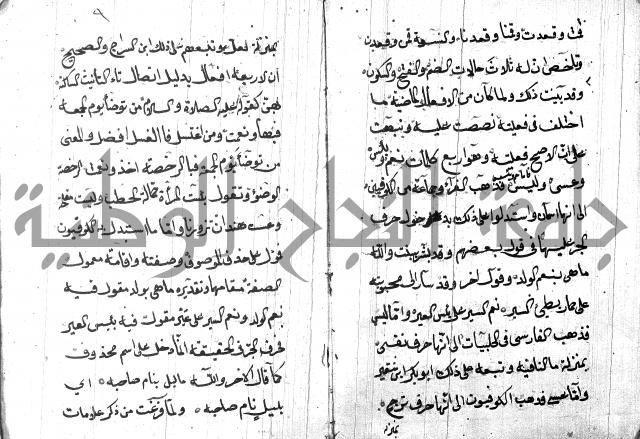 قمت وقعدت وقمنا وقعدنا والنسوة قمن وقعدن
وتلخص ان له ثلاث حالات الضم والفتح والسكون
وقد بينت ذلك ولما كان من الافعال الماضية ما
اختلف في فعليته نصصت عليه ونبهت
على ان الاصح فعليته وهو اربع كلمات نعم وبئس
وعسى وليس فاما نعم وبئس فذهب الفراء وجماعة من الكوفيين
الى انهما اسمان واستدلوا على ذلك بدخول حرف
الجر عليهما في قول بعضهم وقد بشر ببنت والله
ما هي بنعم الولد وقول اخر وقد سار الى محبوبته
على حمار بطئ السير نعم السير على بئس العير واما ليس
فذهب الفارسي في الحلبيات الى انها حرف نفي
بمنزلة ما النافية وتبعه على ذلك ابو بكر ابن شقير
واما عسى فذهب الكوفيون الى انها حرف ترج
بمنزلة
٩
بمنزلة لعل وتبعهم على ذلك ابن السراج والصحيح
ان الاربعة افعال بدليل اتصال تاء التانيث الساكنة
بهن كقوله عليه الصلاة والسلام من توضا يوم الجمعة
فبها ونعمت ومن اغتسل فالغسل افضل والمعنى
من توضا يوم الجمعة فبالرخصة اخذ ونعمت الرخصة
الوضوء وتقول بئست المراة حمالة الحطب وليست
وعست هند ان تزورنا واما ما استدل به الكوفيون
فمؤول على حذف الموصوف وصفته واقامة معمول
الصفة مقامها وتقديره ما هي بولد مقول فيه
نعم الولد ونعم السير على عير مقول فيه بئس العير
فحرف الجر في الحقيقة انما دخل على اسم محذوف
كما قال الاخر والله ما ليل بنام صاحبه اي
بليل نام صاحبه ولما فرغت من ذكر علامات
جامعة النجاح الوطنية